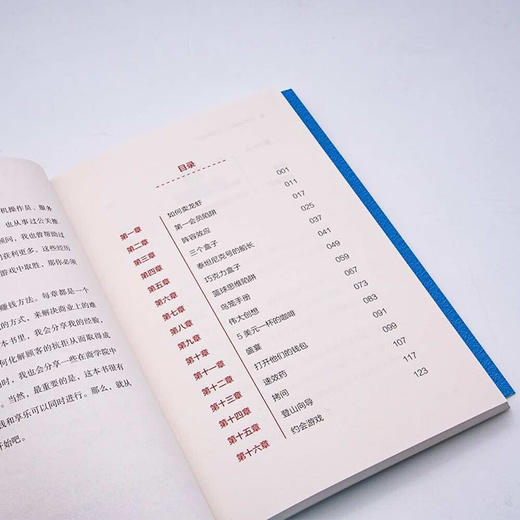 机操作员、服务
也从事过公关推
顾问，我也曾帮助
们获利更多。这些经历
游戏中取胜，你必须
赚钱方法。每章都是一个
的方式，来解决商业上的难
本书里，我会分享我的经验，
何化解顾客的抗拒从而取得成
时，我也会分享一些在商学院中
。当然，最重要的是，这本书很有
钱和享乐可以同时进行。那么，就从
开始吧。
目录
第一章
第二章
第三章
第四章
第五章
第六章
第七章
第八章
第九章
第十章
第十一章
第十二章
第十三章
第十四章
第十五章
第十六章
如何卖龙虾
第一会员陷阱
阵容效应
三个盒子
泰坦尼克号的船长
巧克力盒子
篮球思维陷阱
鸟笼手册
伟大创想
5 美元一杯的咖啡
盛宴
打开他们的钱包
速效药
拷问
登山向导
约会游戏
001
011
017
025
037
041
049
059
073
083
091
099
107
117
123